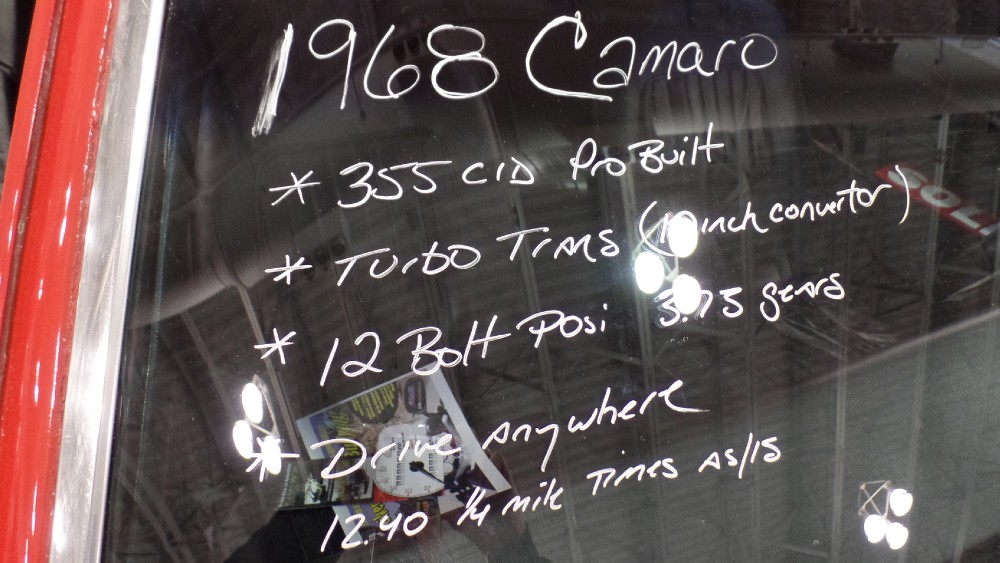 1968 Camaro
* 355 CID Pro Built
* Turbo Trans (10 inch convertor)
* 12 Bolt Posi 3.73 gears
* Drive Anywhere
12.40 1/4 mile Times AS/IS
SOL